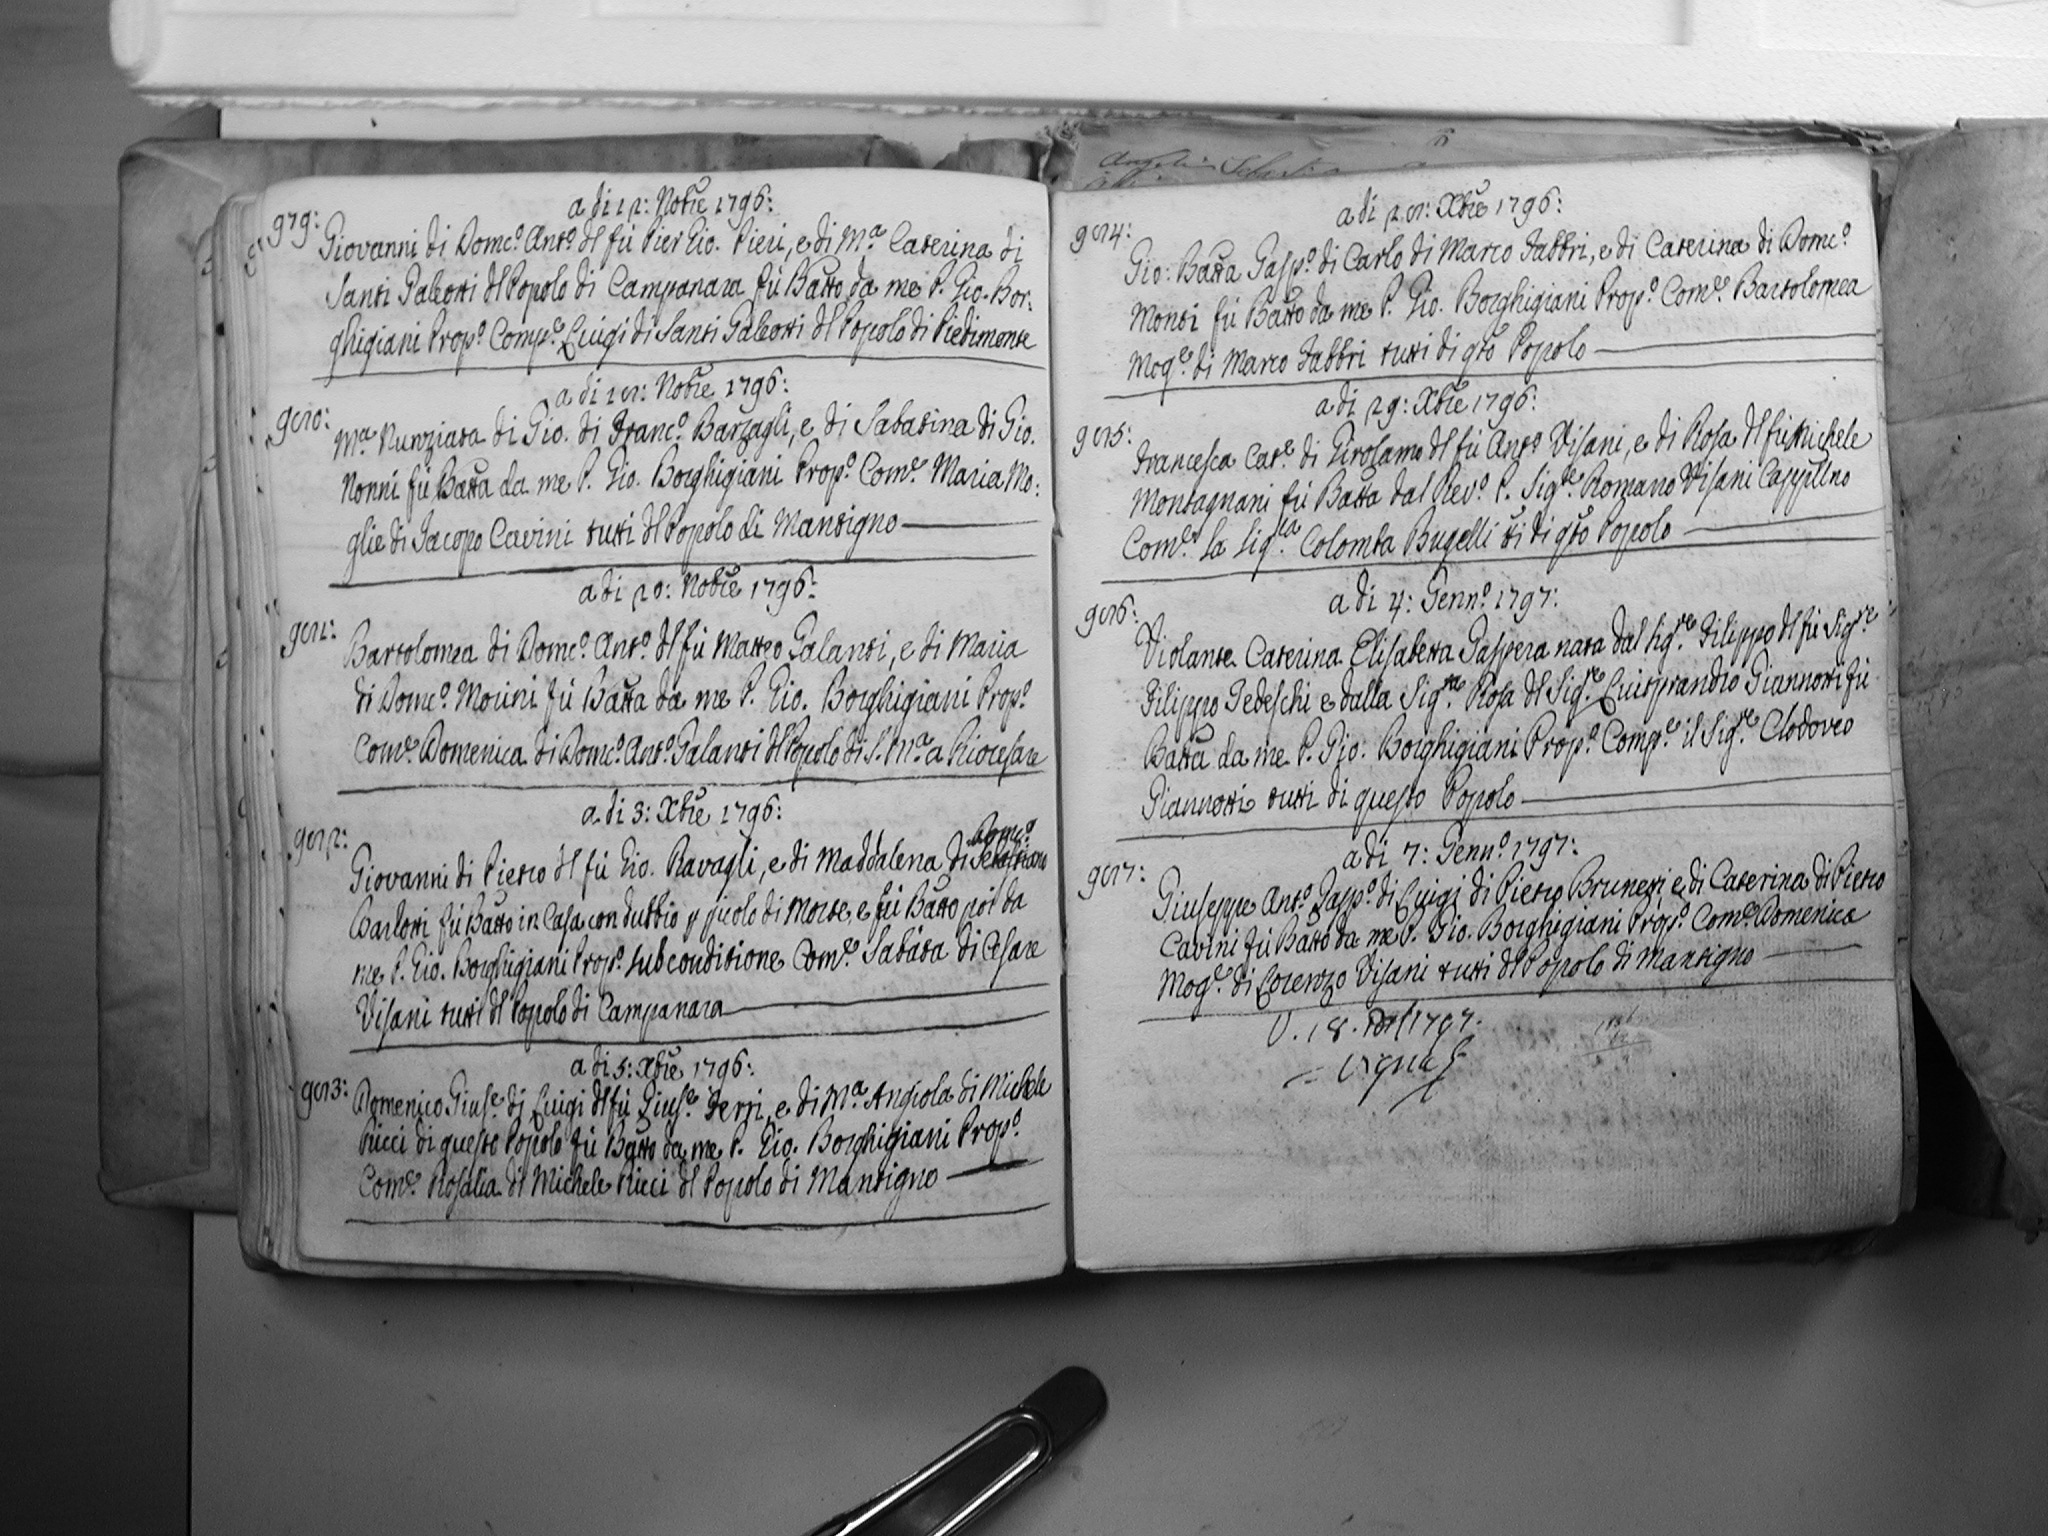 979:
a di 12: Nobre 1796:
Giovanni di Domc.o Ant.o dl fù Pier Gio. Pieri, e di M.a Caterina di
Santi Galeotti dl Popolo di Campanara fù Batto da me P. Gio. Bor:
ghigiani Prop.o Comp.e Luigi di Santi Galeotti dl Popolo di Piedimonte
980:
a di 18: Nobre 1796:
M.a Nunziata di Gio. di Franc.o Barzagli, e di Sabatina di Gio.
Nonni fù Batta da me P. Gio. Borghigiani Prop.o Com.e Maria Mo:
glie di Jacopo Cavini tutti dl Popolo di Mantigno
981:
a di 20: Nobre 1796:
Bartolomea di Domc.o Ant.o dl fù Matteo Galanti, e di Maria
di Domc.o Morini fù Batta da me P. Gio. Borghigiani Prop.o
Com.e Domenica di Domc.o Ant.o Galanti dl Popolo di S. M.a a Riocesare
982:
a di 3: Xbre 1796:
Giovanni di Pietro dl fù Gio. Ravagli, e di Maddalena di Domc.o
Barlotti fù Batto in Casa con dubbio p picolo di Morte, e fù Batto poi da
me P. Gio. Borghigiani Prop.o sub conditione Com.e Sabata di Cesare
Visani tutti dl Popolo di Campanara
983:
a di 5: Xbre 1796:
Domenico Gius.e di Luigi dl fù Gius.e Ferri, e di M.a Angiola di Michele
Ricci di questo Popolo fù Batto da me P. Gio. Borghigiani Prop.o
Com.e Rosalia di Michele Ricci dl Popolo di Mantigno
984:
a di 28: Xbre 1796:
Gio: Batta Gasp.o di Carlo di Marco Fabbri, e di Caterina di Domc.o
Monti fù Batto da me P. Gio. Borghigiani Prop.o Com.e Bartolomea
Mog.e di Marco Fabbri tutti di qto Popolo
985:
a di 29: Xbre 1796:
Francesca Cat.e di Girolamo dl fù Ant.o Visani, e di Rosa dl fù Michele
Montagnani fù Batta dal Rev.o P. Sig.re Romano Visani Cappllno
Com.e la Sig.ra Colomba Bugelli tti di qto Popolo
986:
a di 4: Genn.o 1797:
Violante Caterina Elisabetta Gaspera nata dal Sig.re Filippo dl fù Sig.re
Filippo Tedeschi e dalla Sig.ra Rosa dl Sig.re Luitprandro Giannotti fù
Batta da me P. Gio. Borghigiani Prop.o Comp.e il Sig.re Clodoveo
Giannotti tutti di questo Popolo
987:
a di 7: Genn.o 1797:
Giuseppe Ant.o Gasp.o di Luigi di Pietro Brunetti e di Caterina di Pietro
Cavini fù Batto da me P. Gio. Borghigiani Prop.o Com.e Domenica
Mog.e di Lorenzo Visani tutti dl Popolo di Mantigno
V. 18. 1797.